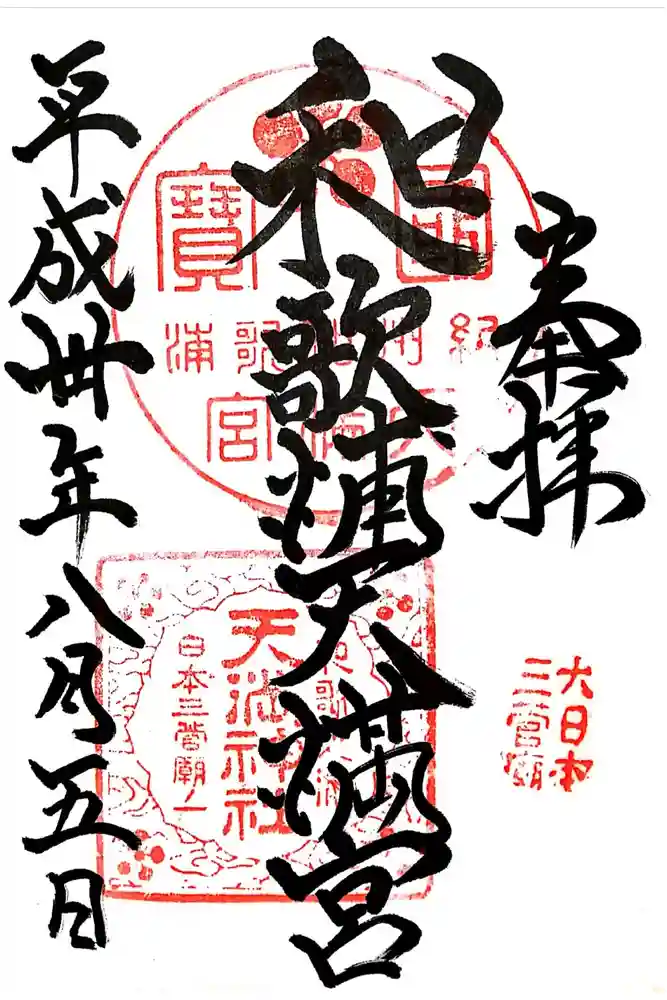 奉拝
大日本
三菅廟
和歌浦天満宮
國寶
紀州和歌浦
天満宮
天満神社
日本三菅廟ノ一
平成卅年八月五日